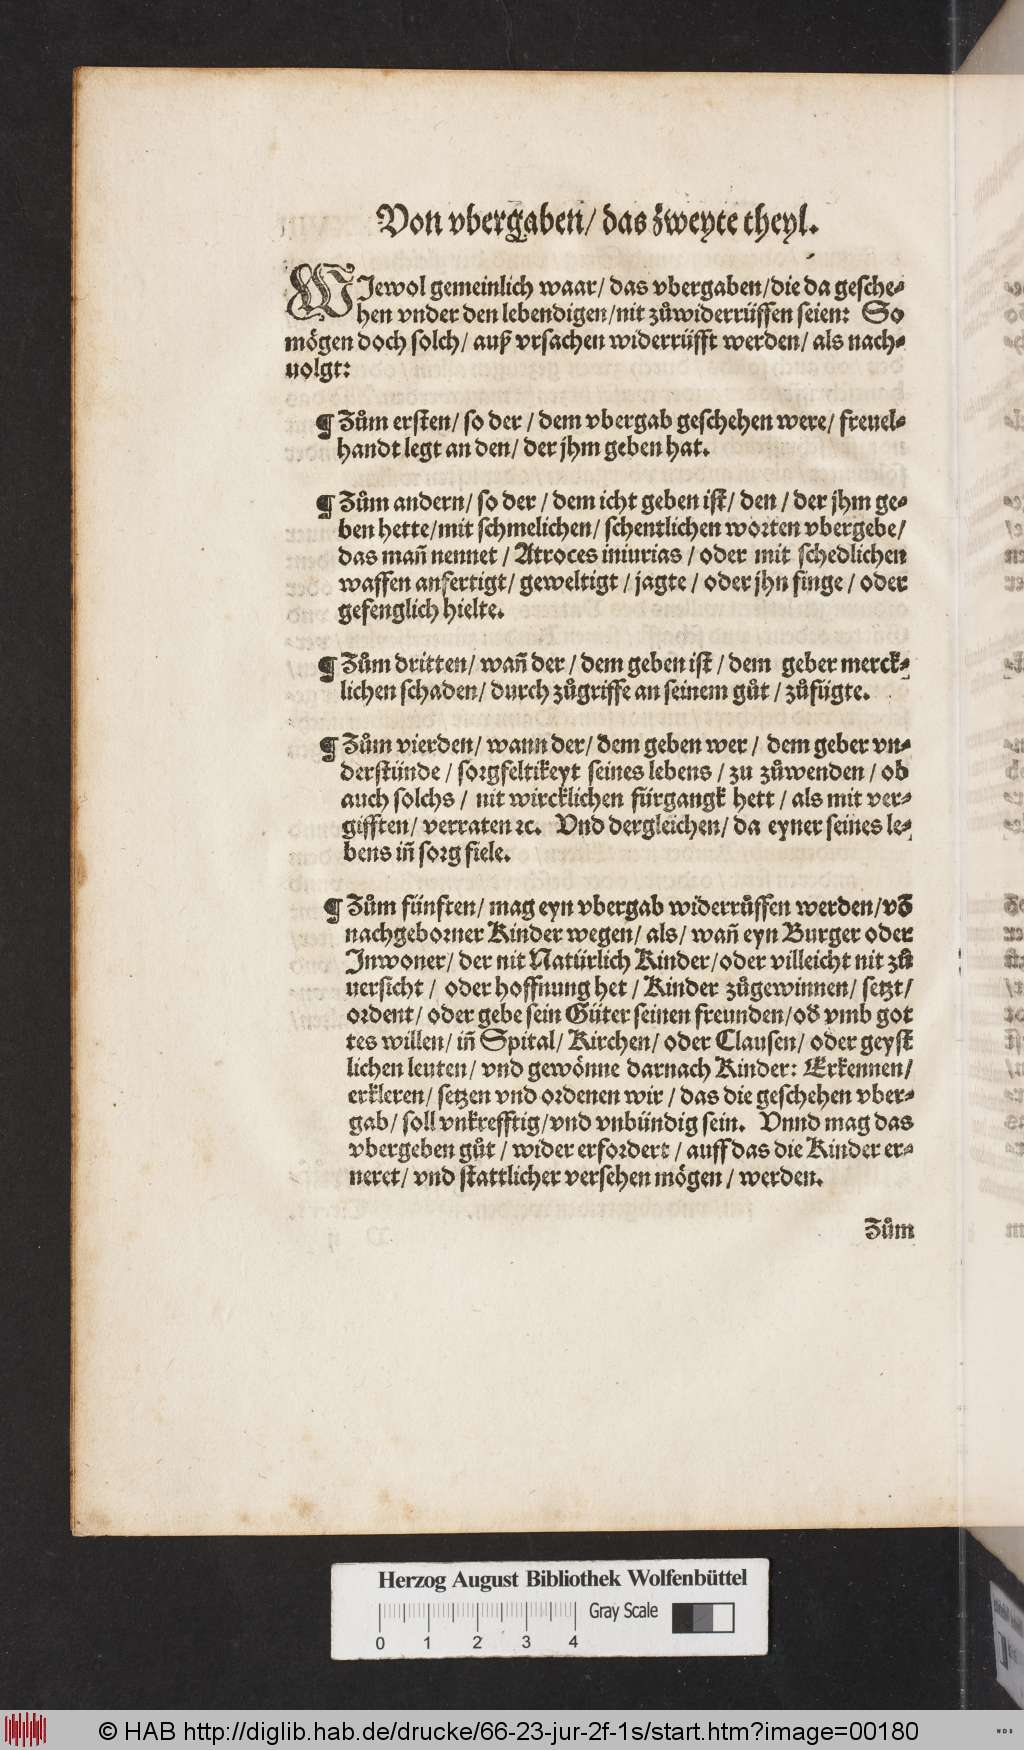 Von vbergaben/ das zweyte theyl.
WJewol gemeinlich waar/ das vbergaben/die da gesche-
hen vnder den lebendigen/nit zůwiderrüffen seien: So
mögen doch solch/ auß vrsachen widerrüfft werden/ als nach-
uolgt:
¶ Zům ersten/ so der / dem vbergab geschehen were/ freuel-
handt legt an den/ der jhm geben hat.
¶ Zům andern/ so der / dem icht geben ist/ den / der jhm ge-
ben hette/mit schmelichen/ schentlichen worten vbergebe/
das mañ nennet / Atroces iniurias / oder mit schedlichen
waffen anfertigt/ geweltigt / jagte / oder jhn finge / oder
gefenglich hielte.
¶ Zům dritten/ wañ der / dem geben ist / dem geber merck-
lichen schaden/ durch zůgriffe an seinem gůt / zůfügte.
¶ Zům vierden/ wann der/ dem geben wer / dem geber vn-
derstünde / sorgfeltikeyt seines lebens / zu zůwenden / ob
auch solchs / nit wircklichen fürgangk hett / als mit ver-
gifften/ verraten ꝛc. Vnd dergleichen/ da eyner seines le-
bens iñ sorg fiele.
¶ Zům fünften/ mag eyn vbergab widerrůffen werden/võ
nachgeborner Kinder wegen/ als/ wañ eyn Burger oder
Jnwoner/ der nit Natürlich Kinder/oder villeicht nit zů
uersicht / oder hoffnung het / Kinder zůgewinnen/ setzt/
ordent/ oder gebe sein Güter seinen freunden/od̕ vmb got
tes willen/ iñ Spital/ Kirchen/ oder Clausen/ oder geyst
lichen leuten/ vnd gewönne darnach Kinder: Erkennen/
erkleren/ setzen vnd ordenen wir / das die geschehen vber-
gab/ soll vnkrefftig/vnd vnbündig sein. Vnnd mag das
vbergeben gůt / wider erfordert / auff das die Kinder er-
neret/ vnd stattlicher versehen mögen / werden.
Zům
Herzog August Bibliothek Wolfenbüttel
0 1 2 3 4 Gray Scale
© HAB http://diglib.hab.de/drucke/66-23-jur-2f-1s/start.htm?image=00180